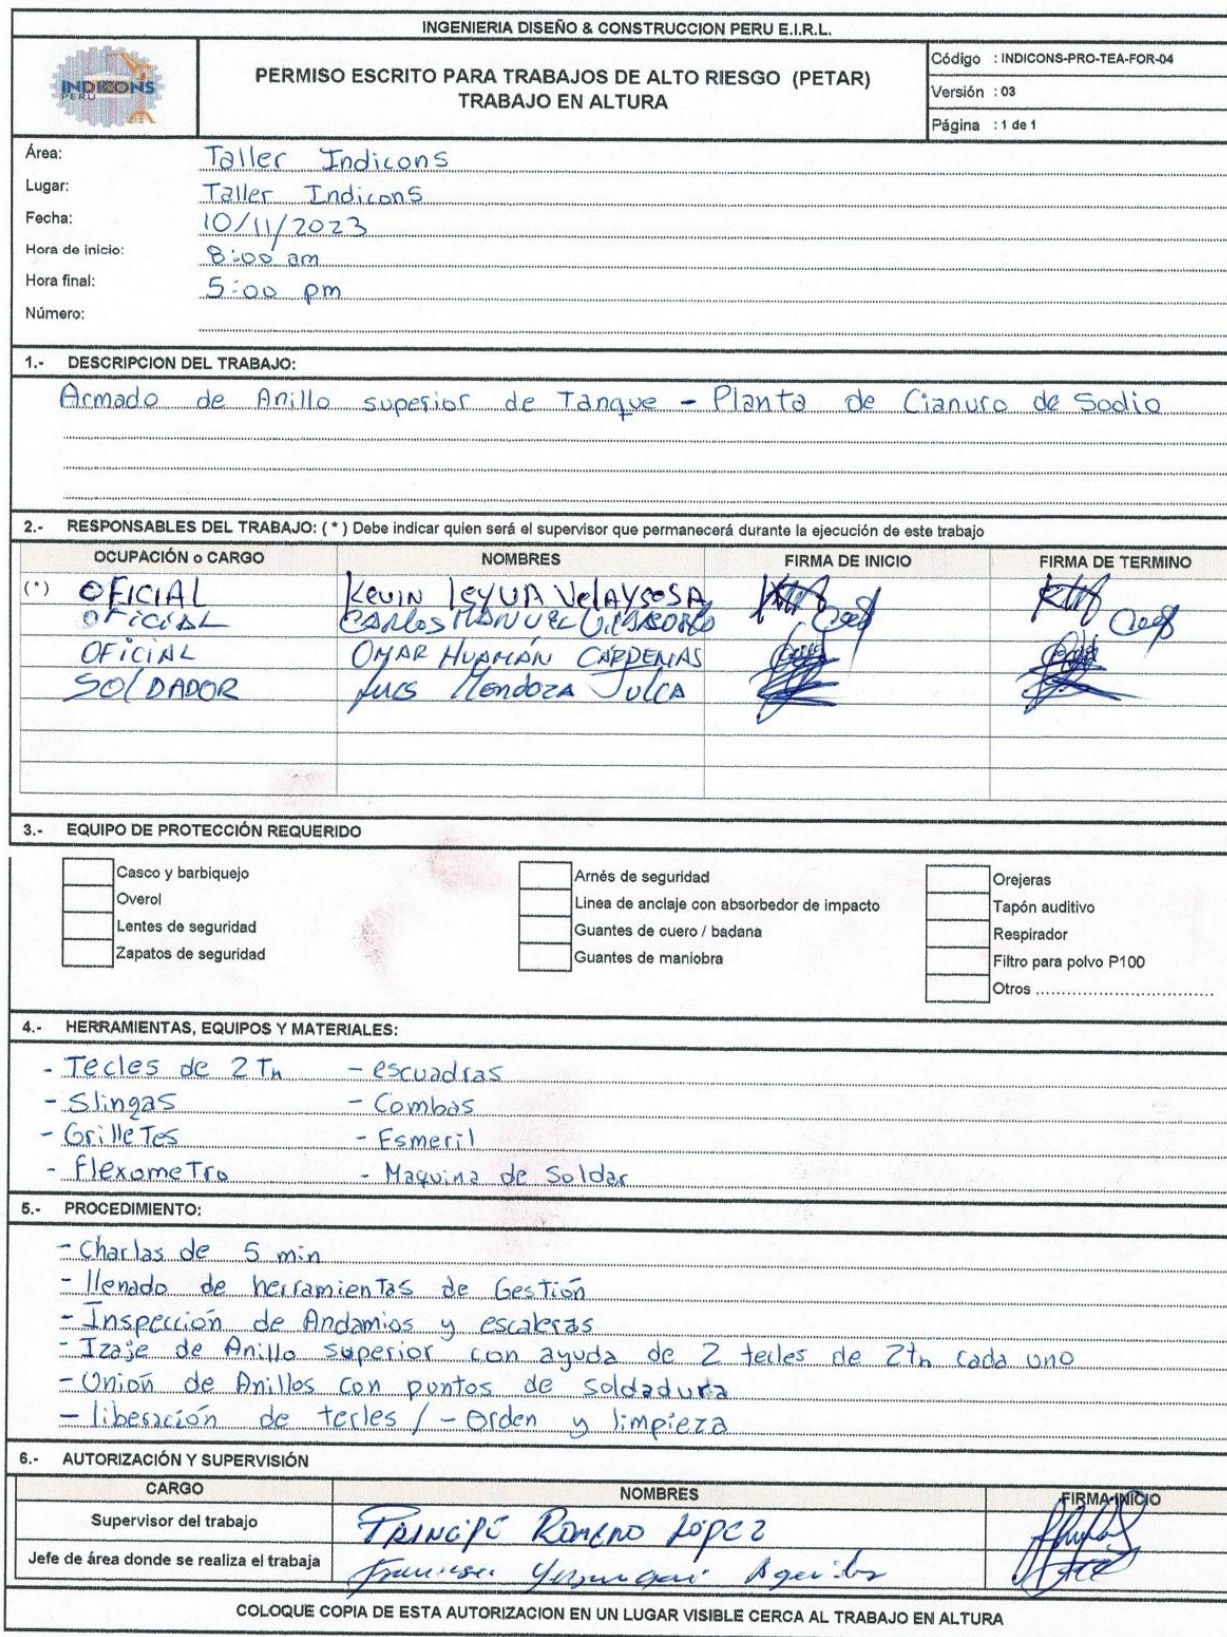 INGENIERIA DISEÑO & CONSTRUCCION PERU E.I.R.L.
INDICONS
PERU
PERMISO ESCRITO PARA TRABAJOS DE ALTO RIESGO (PETAR)
TRABAJO EN ALTURA
Código : INDICONS-PRO-TEA-FOR-04
Versión : 03
Página : 1 de 1
Área: Taller Indicons
Lugar: Taller Indicons
Fecha: 10/11/2023
Hora de inicio: 8:00 am
Hora final: 5:00 pm
Número:
1.- DESCRIPCION DEL TRABAJO:
Armado de Anillo superior de Tanque - Planta de Cianuro de Sodio
2.- RESPONSABLES DEL TRABAJO: ( * ) Debe indicar quien será el supervisor que permanecerá durante la ejecución de este trabajo
OCUPACIÓN o CARGO NOMBRES FIRMA DE INICIO FIRMA DE TERMINO
(*) OFICIAL Kevin leyva Velaysosa
OFICIAL Carlos Manuel
OFICIAL OMAR HUAMÁN CARDENAS
SOLDADOR Luis Mendoza Julca
3.- EQUIPO DE PROTECCIÓN REQUERIDO
Casco y barbiquejo Arnés de seguridad Orejeras
Overol Linea de anclaje con absorbedor de impacto Tapón auditivo
Lentes de seguridad Guantes de cuero / badana Respirador
Zapatos de seguridad Guantes de maniobra Filtro para polvo P100
Otros ................................
4.- HERRAMIENTAS, EQUIPOS Y MATERIALES:
- Tecles de 2 Tn - escuadras
- Slingas - Combas
- Grilletes - Esmeril
- flexometro - Maquina de Soldar
5.- PROCEDIMIENTO:
- Charlas de 5 min
- llenado de herramientas de Gestión
- Inspección de Andamios y escaleras
- Izaje de Anillo superior con ayuda de 2 tecles de 2tn cada uno
- Unión de Anillos con puntos de soldadura
- liberación de tecles / - Orden y limpieza
6.- AUTORIZACIÓN Y SUPERVISIÓN
CARGO NOMBRES FIRMA INICIO
Supervisor del trabajo PRINCIPE ROMERO LÓPEZ
Jefe de área donde se realiza el trabaja
COLOQUE COPIA DE ESTA AUTORIZACION EN UN LUGAR VISIBLE CERCA AL TRABAJO EN ALTURA